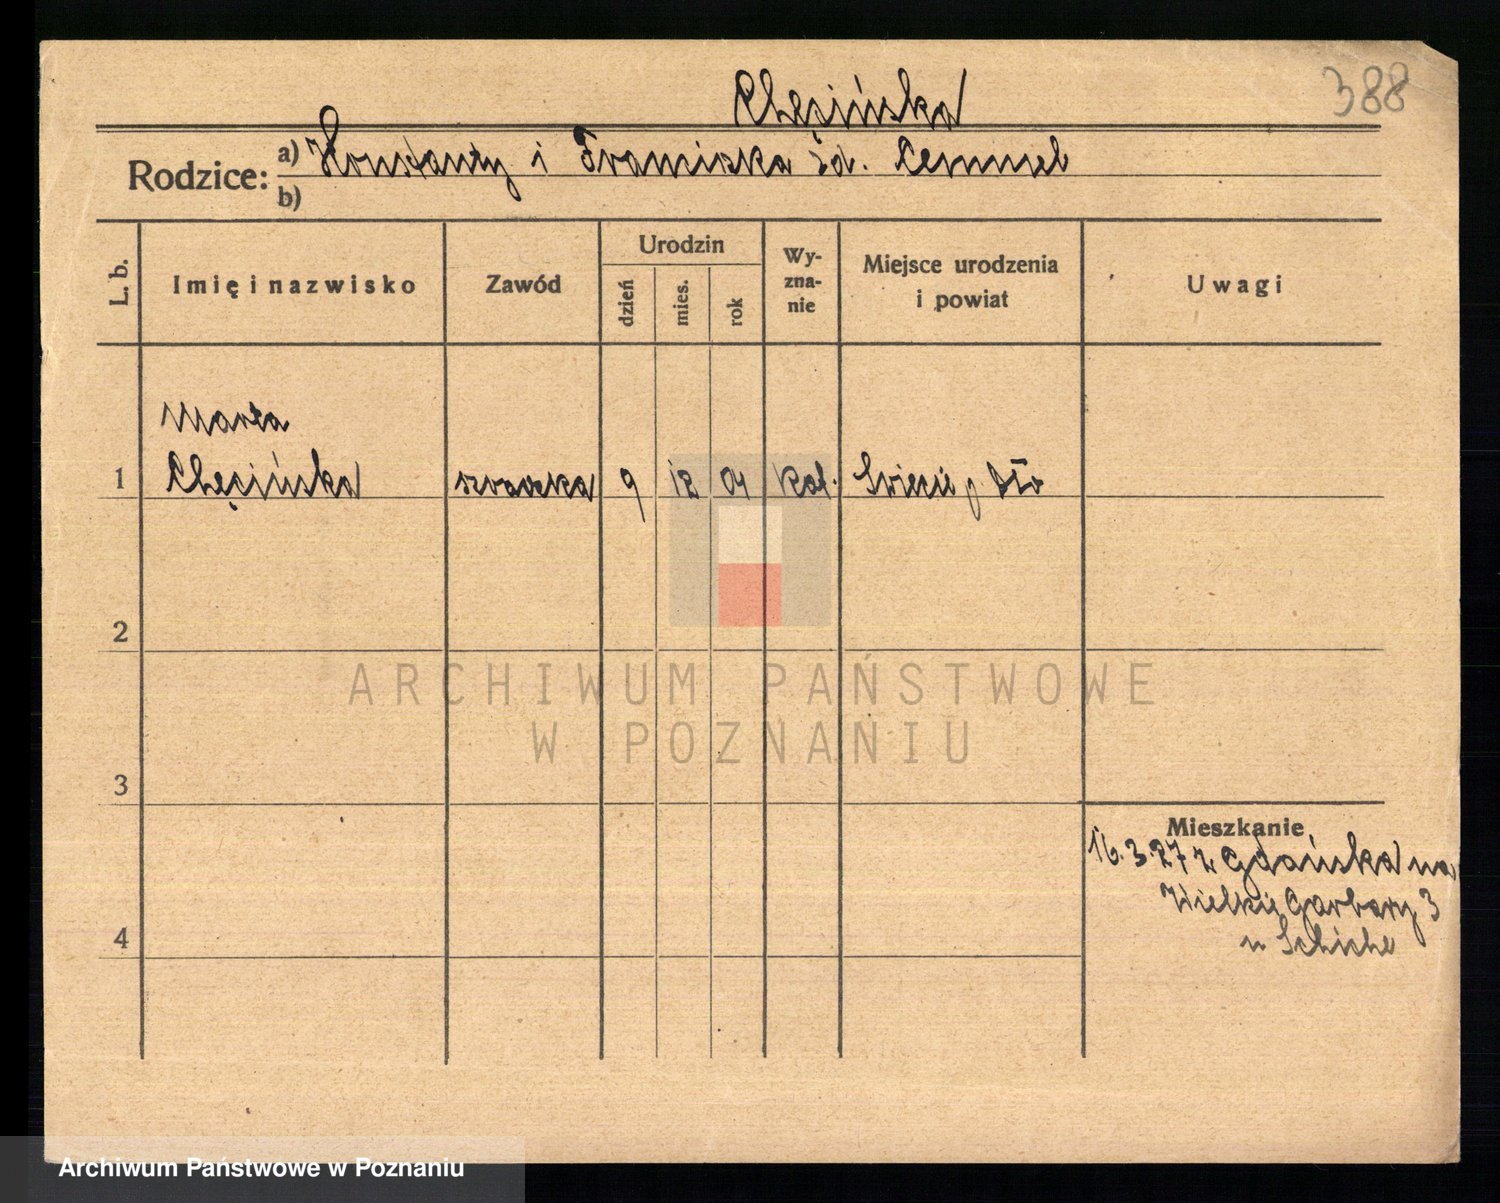 388
Chęcińska
Rodzice: a) Konstanty i Franciszka
b)
L. b.
Imię i nazwisko
Zawód
Urodzin
dzień
mies.
rok
Wy-
zna-
nie
Miejsce urodzenia
i powiat
Uwagi
Marta
1 Chęcińska szwaczka 9 12 04 kat. Świecie p.
2
3
4
Mieszkanie
16.3.27 z Gdańska na
Wielkie Garbary 3
u
ARCHIWUM PAŃSTWOWE
W POZNANIU
Archiwum Państwowe w Poznaniu